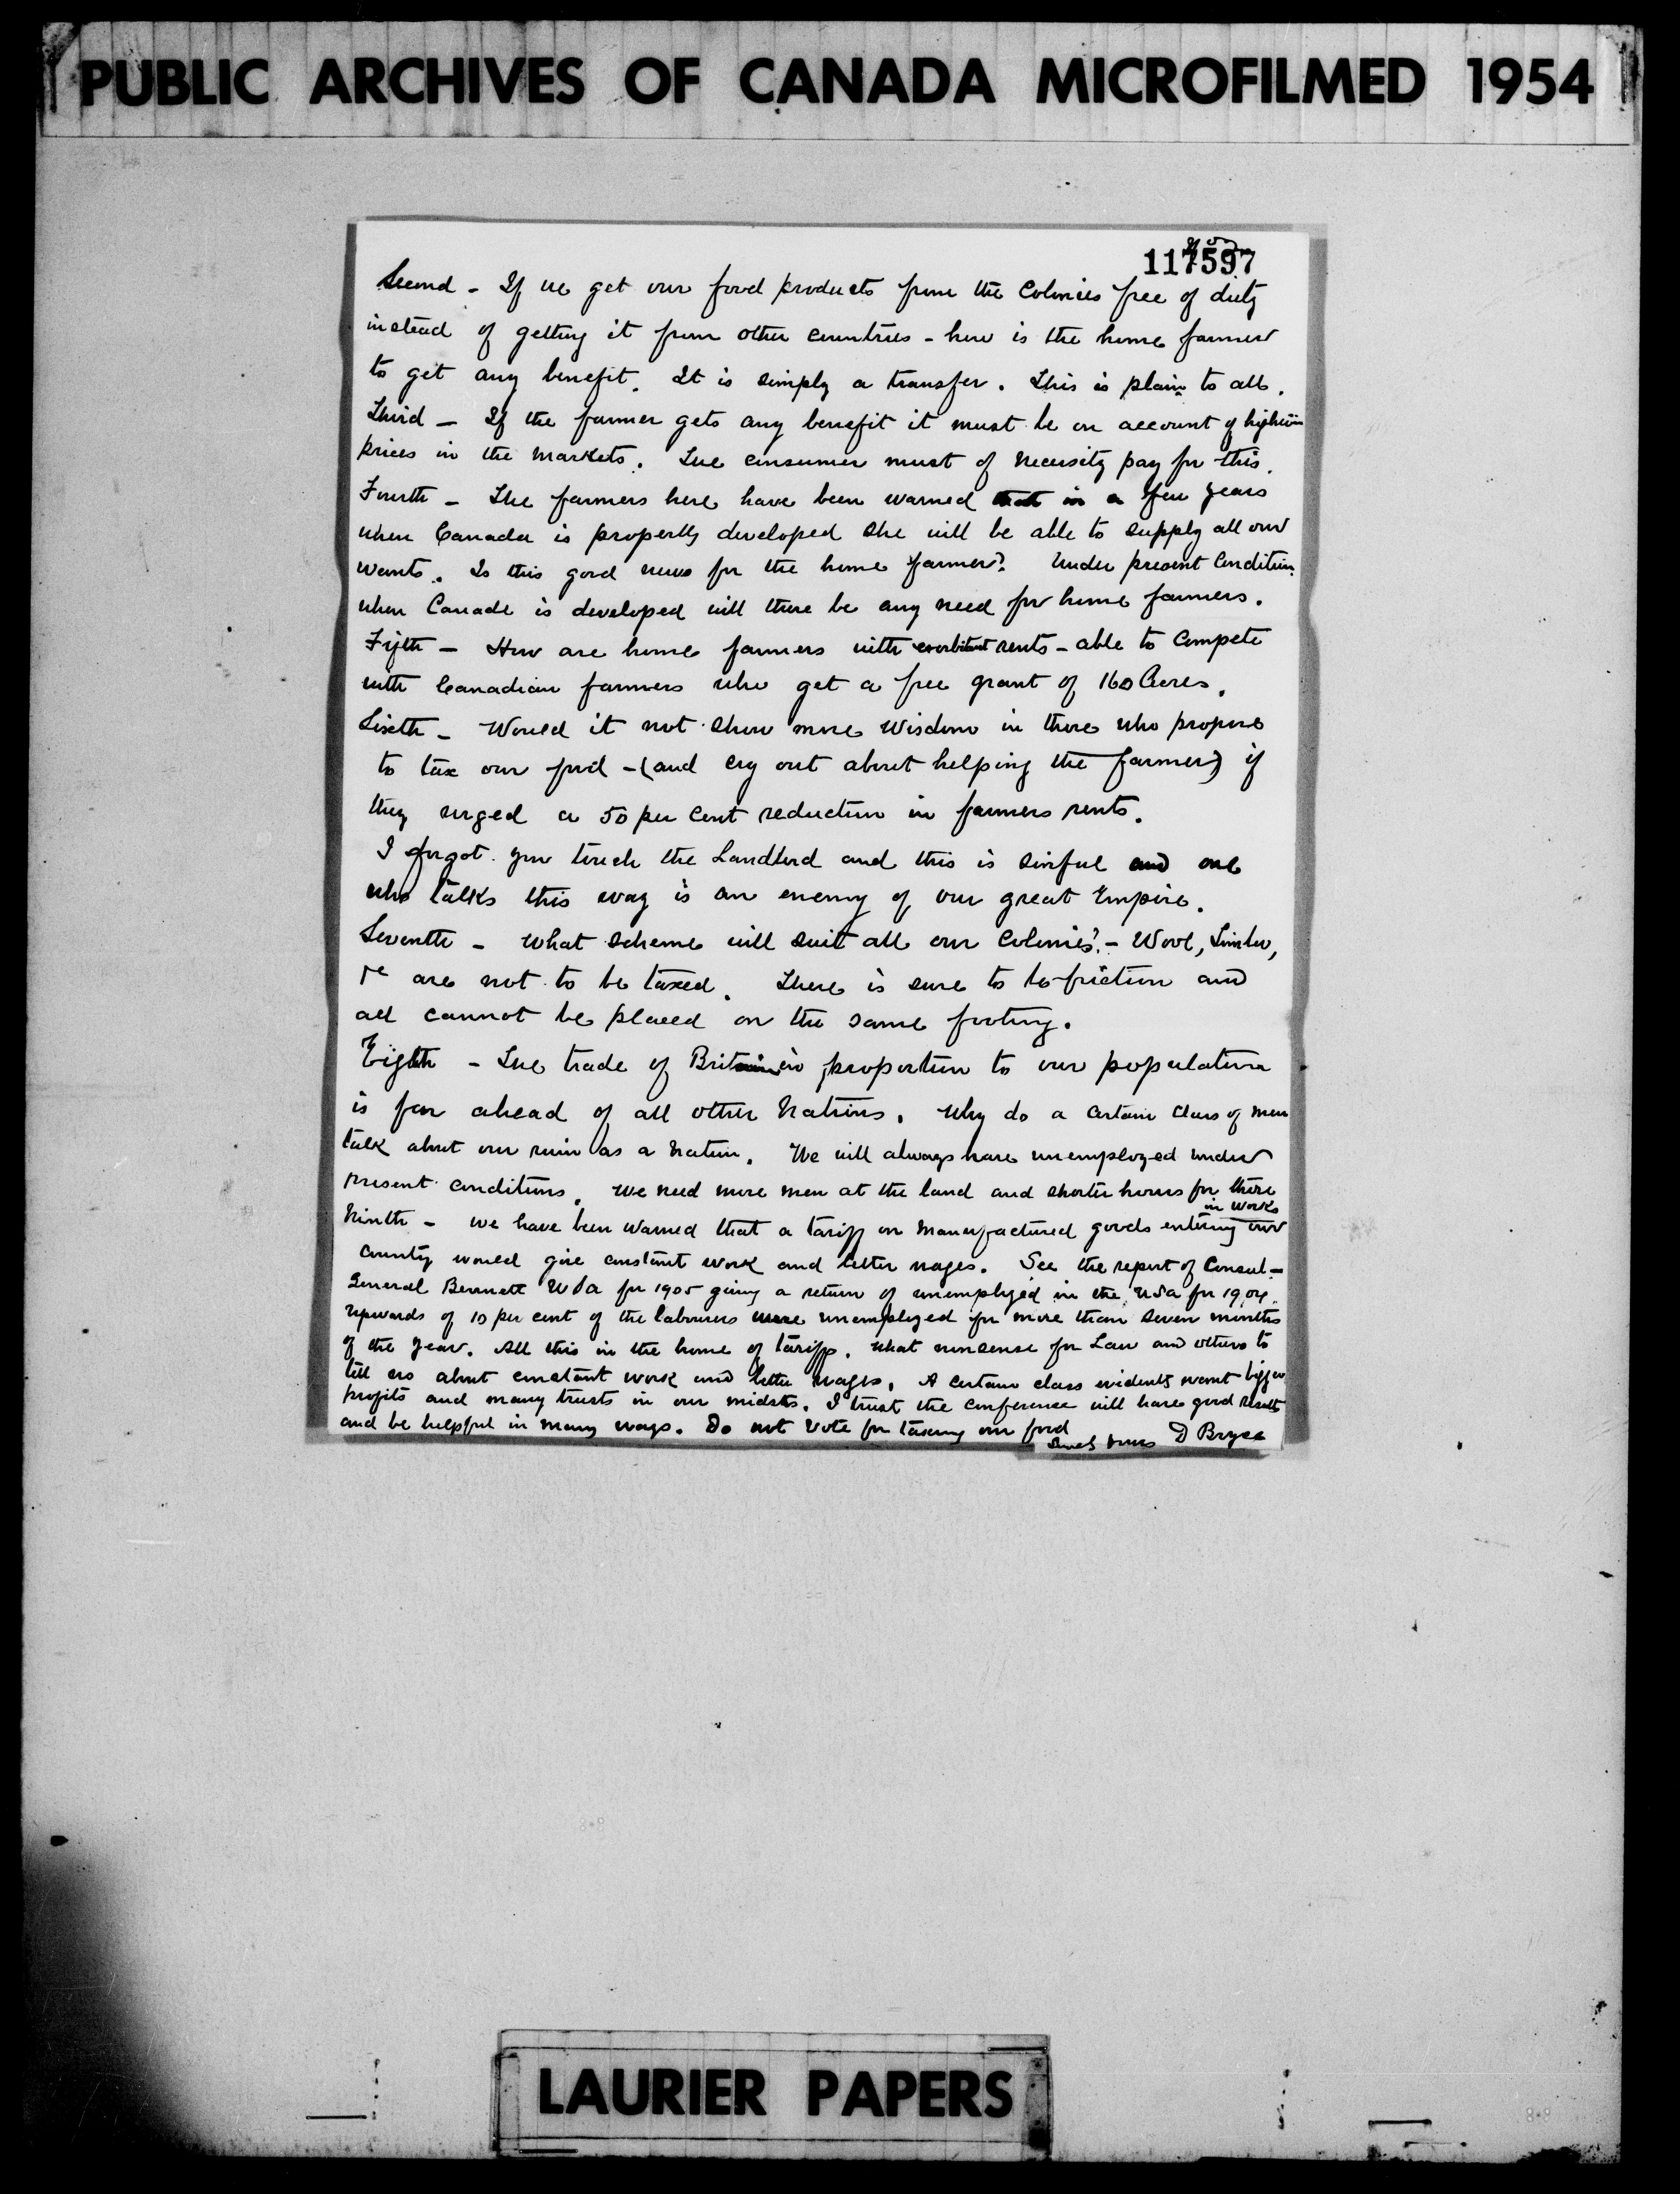 PUBLIC ARCHIVES OF CANADA MICROFILMED 1954
117597
Second - If we get our food products from the Colonies free of duty
instead of getting it from other countries - how is the home farmer
to get any benefit. It is simply a transfer. This is plain to all.
Third - If the farmer gets any benefit it must be on account of
prices in the markets. The consumer must of necessity pay for this.
Fourth - The farmers here have been warned that in a few years
when Canada is properly developed she will be able to supply all our
wants. Is this good news for the home farmer? Under present Condition
when Canada is developed will there be any need for home farmers.
Fifth - How are home farmers with exorbitant rents - able to compete
with Canadian farmers who get a free grant of 160 Acres.
Sixth - Would it not show more Wisdom in those who propose
to tax our food - (and cry out about helping the farmer) if
they urged a 50 per cent reduction in farmers rents.
I forgot. you touch the Landlord and this is sinful and one
who talks this way is an enemy of our great Empire.
Seventh - What scheme will suit all our Colonies? - Wool, Timber,
are not to be taxed. There is sure to be friction and
all cannot be placed on the same footing.
Eighth - The trade of Britain in proportion to our population
is far ahead of all other Nations. Why do a certain class of men
talk about our ruin as a Nation. We will always have unemployed under
present conditions. We need more men at the land and shorter hours for those
in works
Ninth - We have been warned that a tariff on manufactured goods entering our
country would give constant work and better wages. See the report of Consul-
General Bennett USA for 1905 giving a return of unemployed in the USA for 1904.
upwards of 10 per cent of the labourers were unemployed for more than seven months
of the year. All this in the home of tariff. What nonsense for Law and others to
tell us about constant work and better wages. A certain class evidently want bigger
profits and many trusts in our midsts. I trust the conference will have good results
and be helpful in many ways. Do not Vote for taxing our food
D Bryce
LAURIER PAPERS